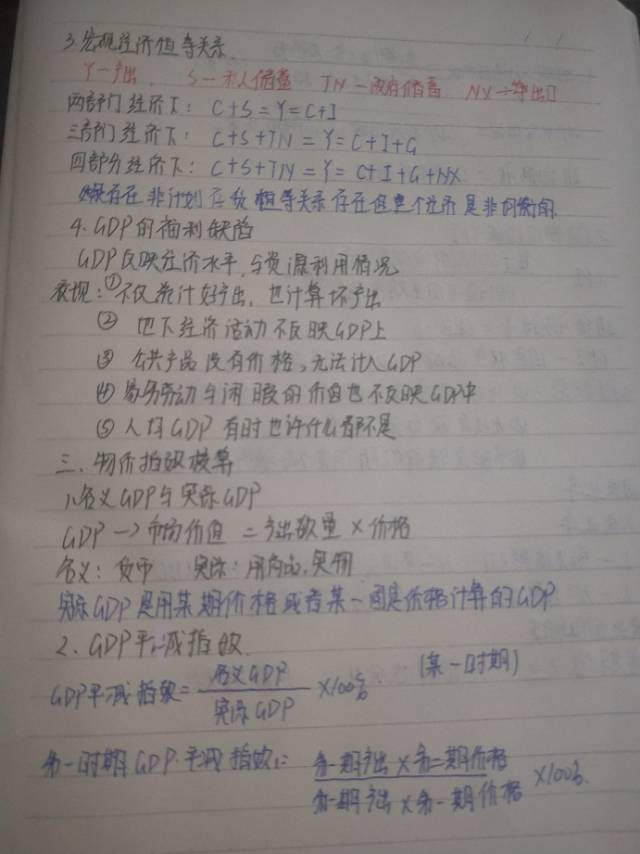 3.宏观经济恒等关系.
Y—产出. S—私人储蓄 TN—政府储蓄 NX—净出口
两部门经济下: C+S=Y=C+I
三部门经济下: C+S+TN=Y=C+I+G
四部分经济下: C+S+TN=Y=C+I+G+NX
存在非计划存货 恒等关系存在但整个经济是非均衡的.
4.GDP的福利缺陷
GDP反映经济水平,与资源利用情况
表现:①不仅统计好产出,也计算坏产出
② 地下经济活动不反映GDP上
③ 公共产品没有价格,无法计入GDP
④ 劳动与闲暇的价值也不反映GDP中
⑤ 人均GDP有时也许什么都不是
三、物价指数核算
1.名义GDP与实际GDP
GDP→市场价值=产出数量×价格
名义:货币 实际:用商品,实物
实际GDP是用某期价格或者某一固定价格计算的GDP
2.GDP平减指数.
GDP平减指数=名义GDP/实际GDP ×100% (某一时期)
第一时期GDP平减指数: 第一期产出×第二期价格/第一期产出×第一期价格 ×100%.